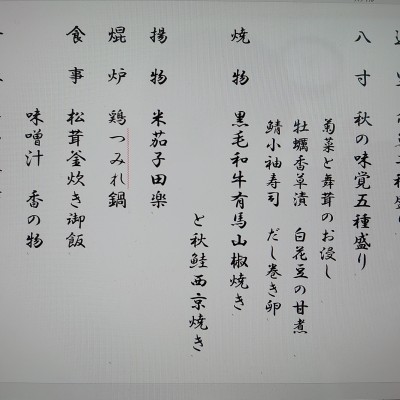 八寸 秋の味覚五種盛り
菊菜と舞茸のお浸し
牡蠣香草漬 白花豆の甘煮
鯖小袖寿司 だし巻き卵
焼物 黒毛和牛有馬山椒焼き
と秋鮭西京焼き
揚物 米茄子田楽
焜炉 鶏つみれ鍋
食事 松茸釜炊き御飯
味噌汁 香の物